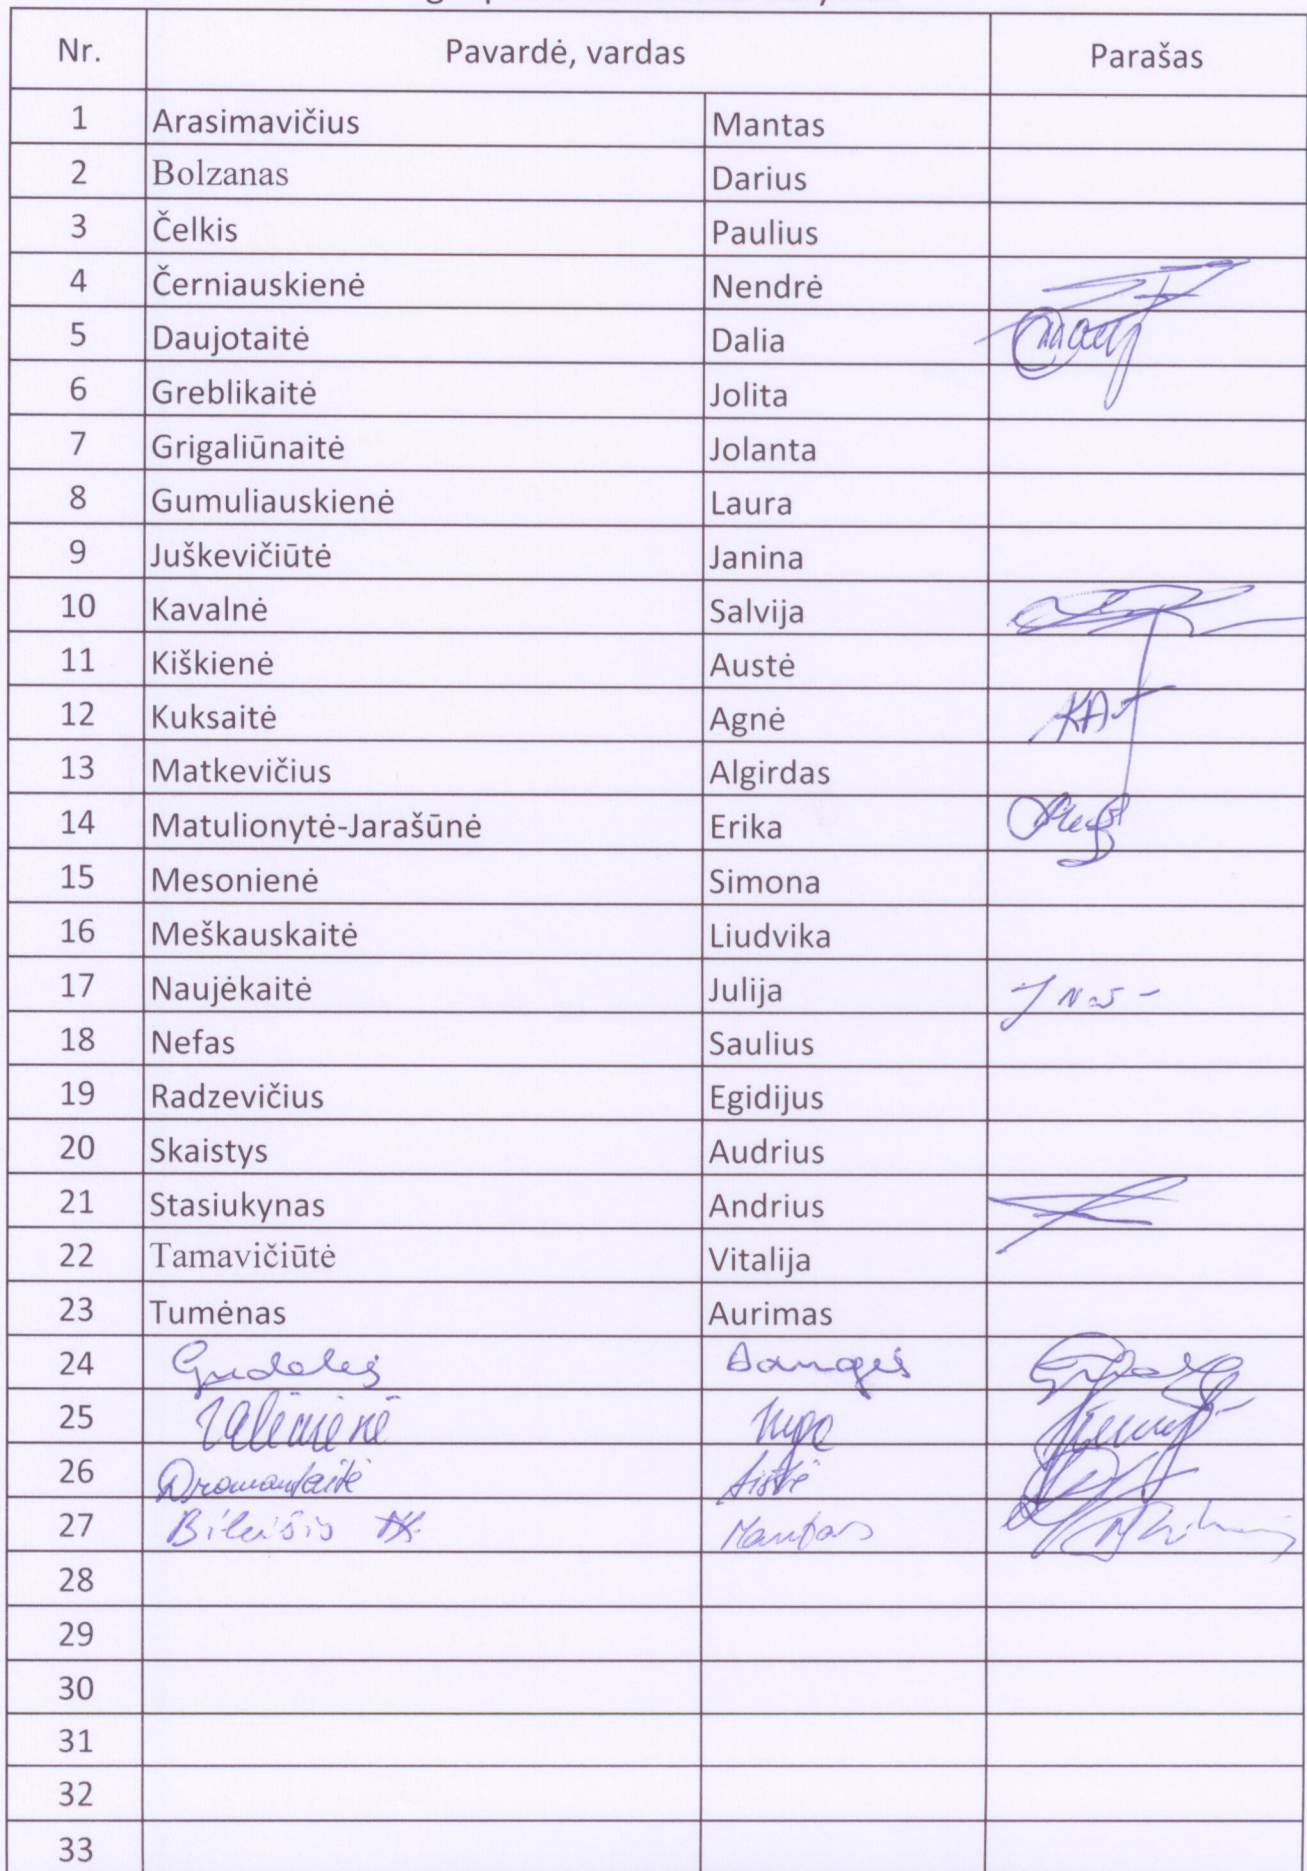 Nr. Pavardė, vardas Parašas
1 Arasimavičius Mantas
2 Bolzanas Darius
3 Čelkis Paulius
4 Černiauskienė Nendrė
5 Daujotaitė Dalia
6 Greblikaitė Jolita
7 Grigaliūnaitė Jolanta
8 Gumuliauskienė Laura
9 Juškevičiūtė Janina
10 Kavalnė Salvija
11 Kiškienė Austė
12 Kuksaitė Agnė KA
13 Matkevičius Algirdas
14 Matulionytė-Jarašūnė Erika
15 Mesonienė Simona
16 Meškauskaitė Liudvika
17 Naujėkaitė Julija
18 Nefas Saulius
19 Radzevičius Egidijus
20 Skaistys Audrius
21 Stasiukynas Andrius
22 Tamavičiūtė Vitalija
23 Tumėnas Aurimas
24 Gudelis Dangis
25
26 Dromantaitė Aistė
27 Bileišis Mantas
28
29
30
31
32
33